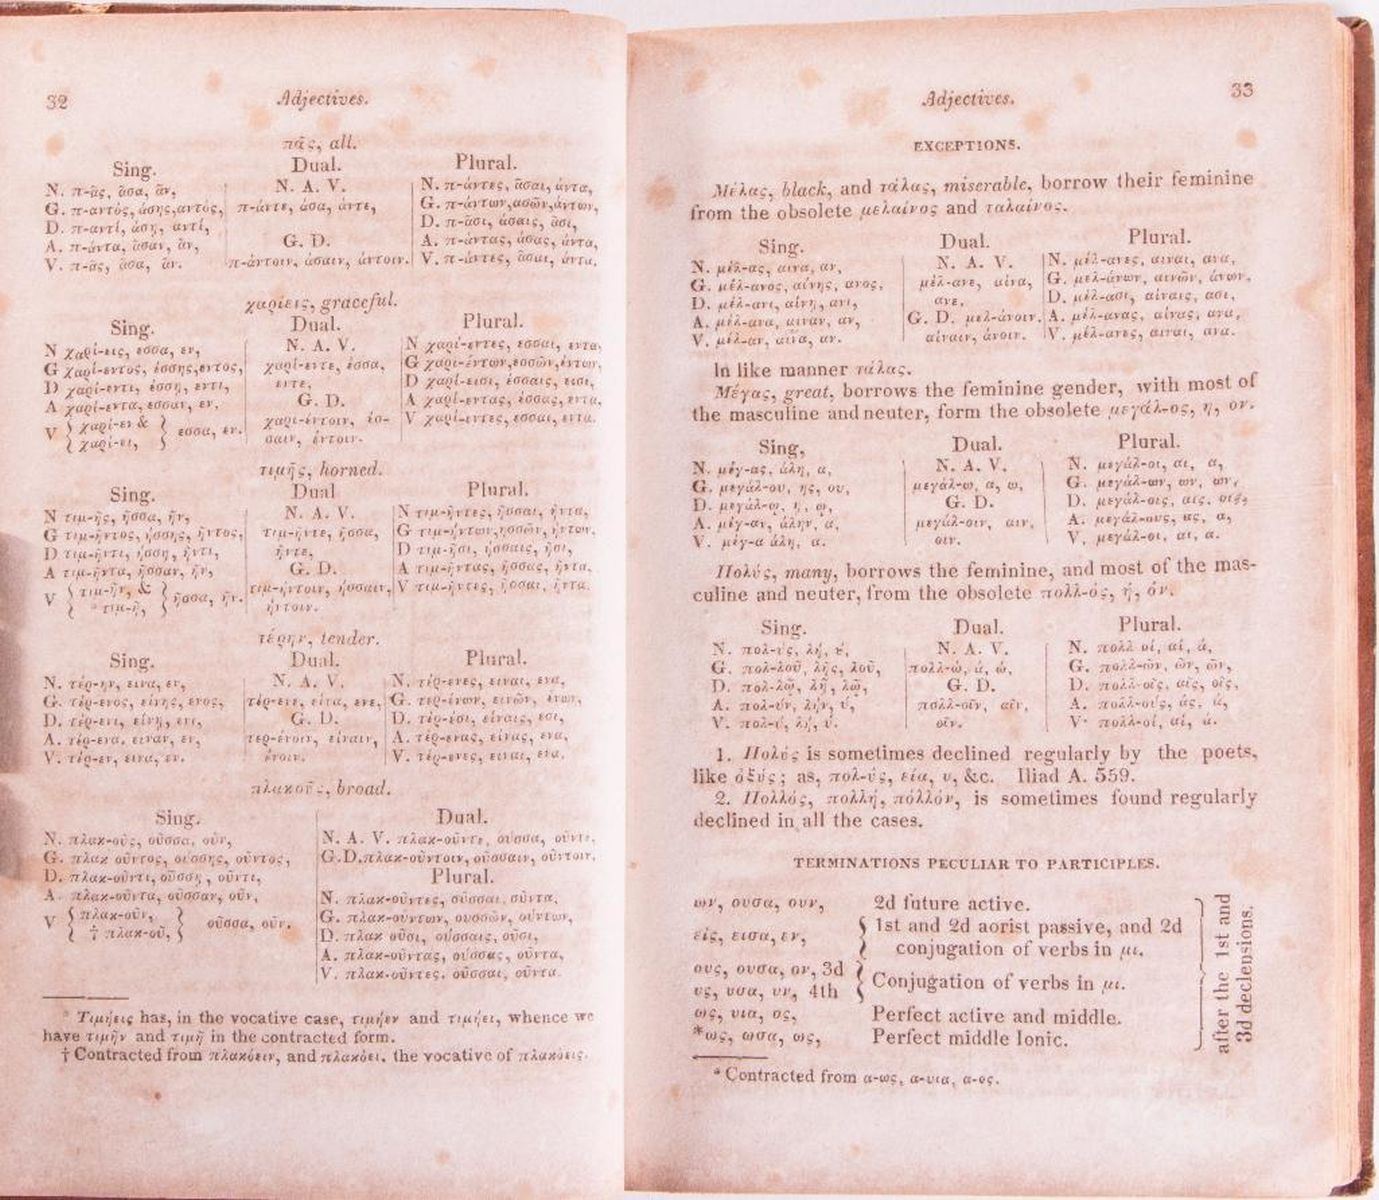 32
Adjectives.
πᾶς, all.
Sing.
N. π-ᾶς, ᾶσα, ᾶν,
G. π-αντός, άσης, αντός,
D. π-αντί, άσῃ, αντί,
A. π-άντα, ᾶσαν, ᾶν,
V. π-ᾶς, ᾶσα, ᾶν.
Dual.
N. A. V.
π-άντε, άσα, άντε,
G. D.
π-άντοιν, άσαιν, άντοιν.
Plural.
N. π-άντες, ᾶσαι, άντα,
G. π-άντων, ασῶν, άντων,
D. π-ᾶσι, άσαις, ᾶσι,
A. π-άντας, άσας, άντα,
V. π-άντες, ᾶσαι, άντα.
χαρίεις, graceful.
Sing.
N χαρί-εις, εσσα, εν,
G χαρί-εντος, έσσης, εντος,
D χαρί-εντι, έσσῃ, εντι,
A χαρί-εντα, εσσαν, εν,
V { χαρί-εν & } εσσα, εν.
χαρί-ει,
Dual.
N. A. V.
χαρί-εντε, έσσα,
εντε,
G. D.
χαρι-έντοιν, έσ-
σαιν, έντοιν.
Plural.
N χαρί-εντες, εσσαι, εντα,
G χαρι-έντων, εσσῶν, έντων,
D χαρί-εισι, έσσαις, εισι,
A χαρί-εντας, έσσας, εντα,
V χαρί-εντες, εσσαι, εντα.
τιμῆς, horned.
Sing.
N τιμ-ῆς, ῆσσα, ῆν,
G τιμ-ῆντος, ήσσης, ῆντος,
D τιμ-ῆντι, ήσσῃ, ῆντι,
A τιμ-ῆντα, ῆσσαν, ῆν,
V { τιμ-ῆν, & } ῆσσα, ῆν.
* τιμ-ῆ,
Dual
N. A. V.
τιμ-ῆντε, ήσσα,
ῆντε,
G. D.
τιμ-ήντοιν, ήσσαιν,
ήντοιν.
Plural.
N τιμ-ῆντες, ῆσσαι, ῆντα,
G τιμ-ήντων, ησσῶν, ήντων,
D τιμ-ῆσι, ήσσαις, ῆσι,
A τιμ-ῆντας, ήσσας, ῆντα,
V τιμ-ῆντες, ῆσσαι, ῆντα.
τέρην, tender.
Sing.
N. τέρ-ην, εινα, εν,
G. τέρ-ενος, είνης, ενος,
D. τέρ-ενι, είνῃ, ενι,
A. τέρ-ενα, ειναν, εν,
V. τέρ-εν, εινα, εν.
Dual.
N. A. V.
τέρ-ενε, είνα, ενε,
G. D.
τερ-ένοιν, είναιν,
ένοιν.
Plural.
N. τέρ-ενες, ειναι, ενα,
G. τερ-ένων, εινῶν, ένων,
D. τέρ-εσι, είναις, εσι,
A. τέρ-ενας, είνας, ενα,
V. τέρ-ενες, ειναι, ενα.
πλακοῦς, broad.
Sing.
N. πλακ-οῦς, οῦσσα, οῦν,
G. πλακ οῦντος, ούσσης, οῦντος,
D. πλακ-οῦντι, ούσσῃ, οῦντι,
A. πλακ-οῦντα, οῦσσαν, οῦν,
V { πλακ-οῦν, } οῦσσα, οῦν.
† πλακ-οῦ,
Dual.
N. A. V. πλακ-οῦντε, ούσσα, οῦντε,
G.D. πλακ-ούντοιν, ούσσαιν, ούντοιν.
Plural.
N. πλακ-οῦντες, οῦσσαι, οῦντα,
G. πλακ-ούντων, ουσσῶν, ούντων,
D. πλακ οῦσι, ούσσαις, οῦσι,
A. πλακ-οῦντας, ούσσας, οῦντα,
V. πλακ-οῦντες, οῦσσαι, οῦντα.
* Τιμήεις has, in the vocative case, τιμῆεν and τιμήει, whence we
have τιμῆν and τιμῆ in the contracted form.
† Contracted from πλακόειν, and πλακόει, the vocative of πλακόεις.
33
Adjectives.
EXCEPTIONS.
Μέλας, black, and τάλας, miserable, borrow their feminine
from the obsolete μελαίνος and ταλαίνος.
Sing.
N. μέλ-ας, αινα, αν,
G. μέλ-ανος, αίνης, ανος,
D. μέλ-ανι, αίνῃ, ανι,
A. μέλ-ανα, αιναν, αν,
V. μέλ-αν, αινα, αν.
Dual.
N. A. V.
μέλ-ανε, αίνα,
ανε,
G. D. μελ-άνοιν,
αίναιν, άνοιν.
Plural.
N. μέλ-ανες, αιναι, ανα,
G. μελ-άνων, αινῶν, άνων,
D. μέλ-ασι, αίναις, ασι,
A. μέλ-ανας, αίνας, ανα,
V. μέλ-ανες, αιναι, ανα.
In like manner τάλας.
Μέγας, great, borrows the feminine gender, with most of
the masculine and neuter, form the obsolete μεγάλ-ος, η, ον.
Sing,
N. μέγ-ας, άλη, α,
G. μεγάλ-ου, ης, ου,
D. μεγάλ-ῳ, ῃ, ῳ,
A. μέγ-αν, άλην, α,
V. μέγ-α άλη, α.
Dual.
N. A. V.
μεγάλ-ω, α, ω,
G. D.
μεγάλ-οιν, αιν,
οιν.
Plural.
N. μεγάλ-οι, αι, α,
G. μεγάλ-ων, ων, ων,
D. μεγάλ-οις, αις, οις,
A. μεγάλ-ους, ας, α,
V. μεγάλ-οι, αι, α.
Πολύς, many, borrows the feminine, and most of the mas-
culine and neuter, from the obsolete πολλ-ός, ή, όν.
Sing.
N. πολ-ύς, λή, ύ,
G. πολ-λοῦ, λῆς, λοῦ,
D. πολ-λῷ, λῇ, λῷ,
A. πολ-ύν, λήν, ύ,
V. πολ-ύ, λή, ύ.
Dual.
N. A. V.
πολλ-ώ, ά, ώ,
G. D.
πολλ-οῖν, αῖν,
οῖν.
Plural.
N. πολλ οί, αί, ά,
G. πολλ-ῶν, ῶν, ῶν,
D. πολλ-οῖς, αῖς, οῖς,
A. πολλ-ούς, άς, ά,
V· πολλ-οί, αί, ά.
1. Πολύς is sometimes declined regularly by the poets,
like ὀξύς; as, πολ-ύς, εία, υ, &c. Iliad A. 559.
2. Πολλός, πολλή, πόλλόν, is sometimes found regularly
declined in all the cases.
TERMINATIONS PECULIAR TO PARTICIPLES.
ων, ουσα, ουν, 2d future active.
είς, εισα, εν, { 1st and 2d aorist passive, and 2d
conjugation of verbs in μι.
ους, ουσα, ον, 3d
υς, υσα, υν, 4th } Conjugation of verbs in μι.
ως, υια, ος, Perfect active and middle.
*ως, ωσα, ως, Perfect middle Ionic.
after the 1st and
3d declensions.
* Contracted from α-ως, α-υια, α-ος.